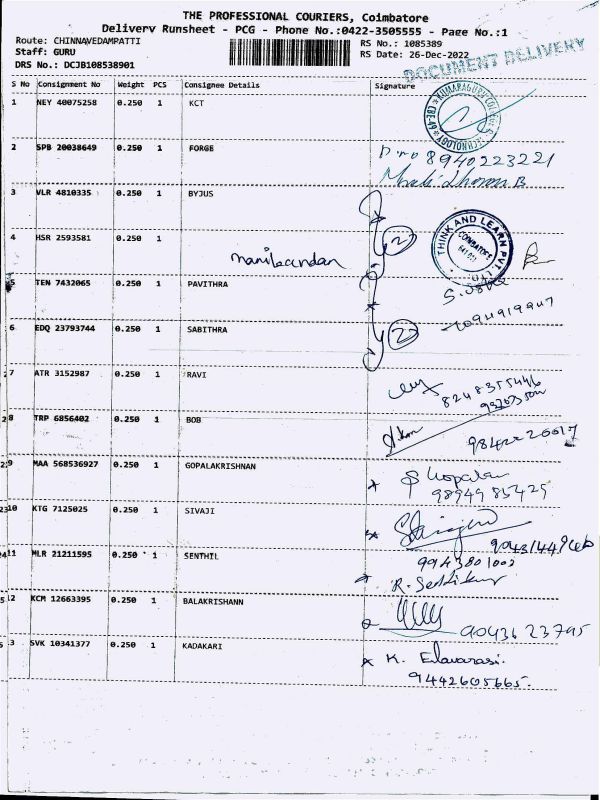 THE PROFESSIONAL COURIERS, Coimbatore
Delivery Runsheet - PCG - Phone No.:0422-3505555 - Page No.:1
Route: CHINNAVEDAMPATTI
RS No.: 1085389
Staff: GURU
RS Date: 26-Dec-2022
DRS No.: DCJB108538901
DOCUMENT DELIVERY
S No Consignment No Weight PCS Consignee Details Signature
1 NEY 40075258 0.250 1 KCT
KUMARAGURU COLLEGE OF TECHNOLOGY
2 SPB 20038649 0.250 1 FORGE
8940223221
3 VLR 4810335 0.250 1 BYJUS
THINK AND LEARN PVT. LTD
COIMBATORE
4 HSR 2593581 0.250 1
2
manikandan
5 TEN 7432065 0.250 1 PAVITHRA
6 EDQ 23793744 0.250 1 SABITHRA
2
7 ATR 3152987 0.250 1 RAVI
8248355446
8 TRP 6856402 0.250 1 BOB
9 MAA 568536927 0.250 1 GOPALAKRISHNAN
Gopalan
9894985425
10 KTG 7125025 0.250 1 SIVAJI
11 MLR 21211595 0.250 1 SENTHIL
9943801002
R. Senthilkumar
12 KCM 12663395 0.250 1 BALAKRISHANN
9043623795
3 SVK 10341377 0.250 1 KADAKARI
K. Elavarasi.
9442605665.